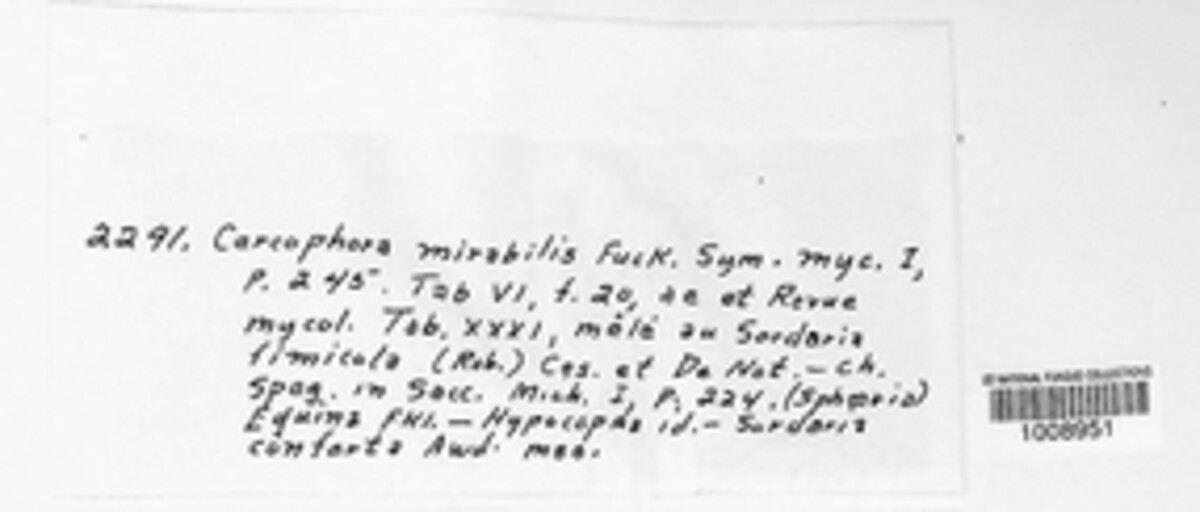 2291. Carcophora mirabilis Fuck. Sym. myc. I,
P. 245. Tab VI, f. 20, et Revue
mycol. Tab. XXXI, mêlé au Sordaria
fimicola (Rob.) Ces. et De Not. — Ch.
Speg. in Sacc. Mich. I, P. 224. (Sphaeria)
Equina FKl. — Hypocopha id. — Sordaria
conforta Awd. mss.
US NATIONAL FUNGUS COLLECTIONS
1008951